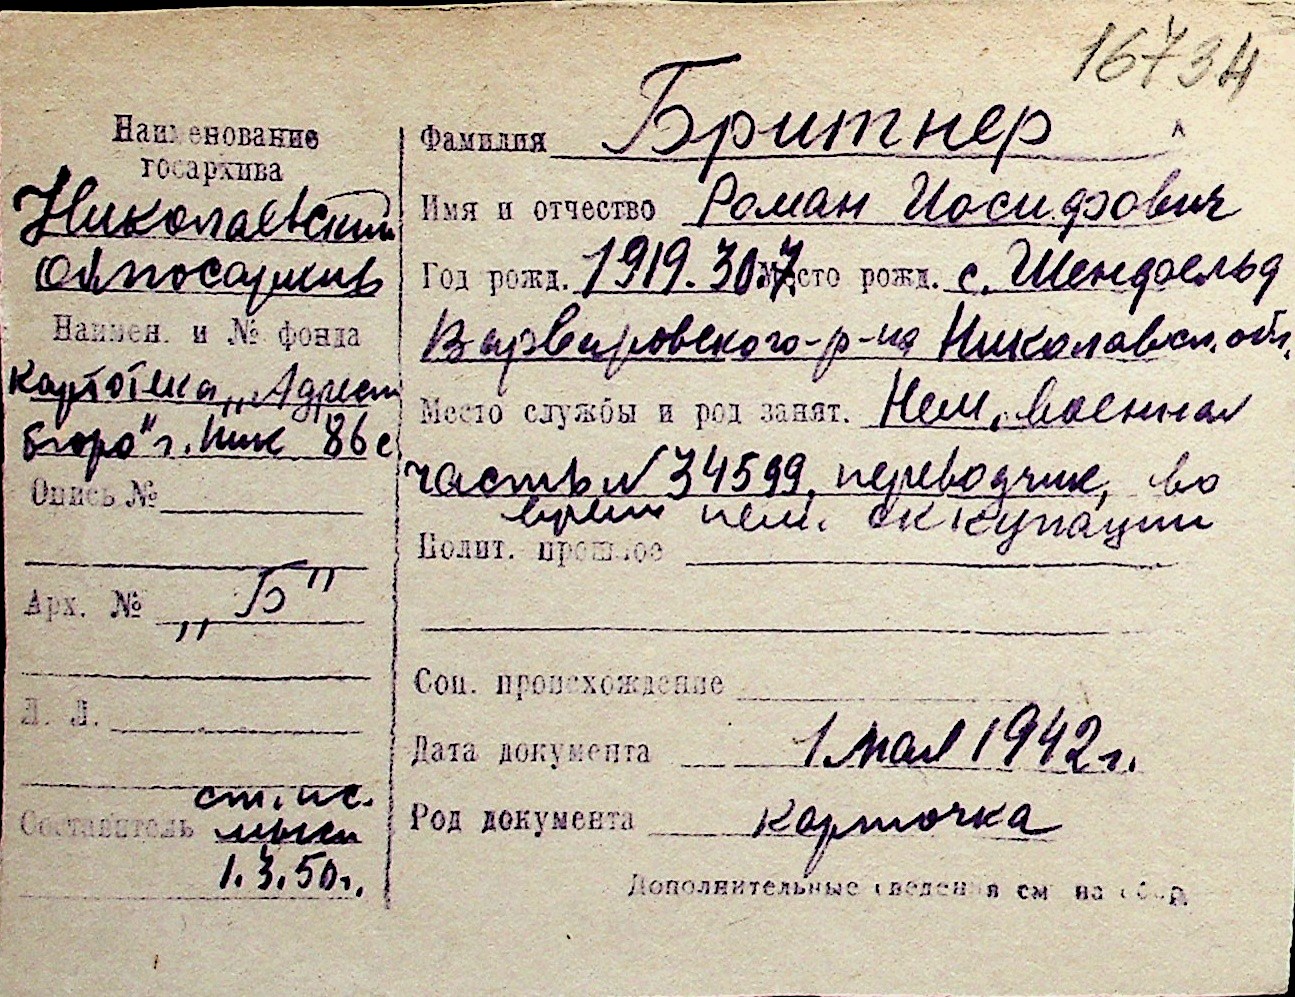 16734
Наименование
госархива
Николаевский
Облгосархив
Наимен. и № фонда
Картотека "Адресн
бюро" г. Ник 86с
Опись №
Арх. № "Б"
Л. Л.
ст. ис.
Составитель
1.3.50г.
Фамилия Бритнер
Имя и отчество Роман Иосифович
Год рожд. 1919.30.7 Место рожд. с. Шендфельд
Варваровского-р-на Николаевск. обл.
Место службы и род занят. Нем. военная
часть N 34599, переводчик, во
время нем. оккупации
Полит. прошлое
Соц. происхождение
Дата документа 1 мая 1942г.
Род документа карточка
Дополнительные сведения см на обор.